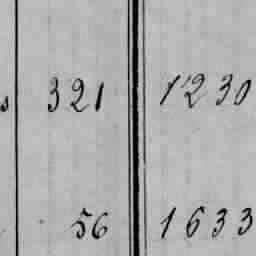 s 321 1230
56 1633